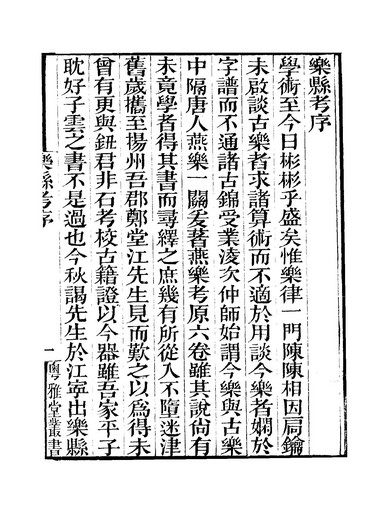 樂縣考序
學術至今日彬彬乎盛矣惟樂律一門陳陳相因扃鑰
未啟談古樂者求諸算術而不適於用談今樂者嫻於
字譜而不通諸古錦受業淩次仲師始謂今樂與古樂
中隔唐人燕樂一關爰著燕樂考原六卷雖其說尙有
未竟學者得其書而尋繹之庶幾有所從入不墮迷津
舊歲攜至揚州吾郡鄭堂江先生見而歎之以為得未
曾有更與鈕君非石考校古籍證以今器雖吾家平子
耽好子雲之書不是過也今秋謁先生於江寧出樂縣
樂縣考序
一
粵雅堂叢書